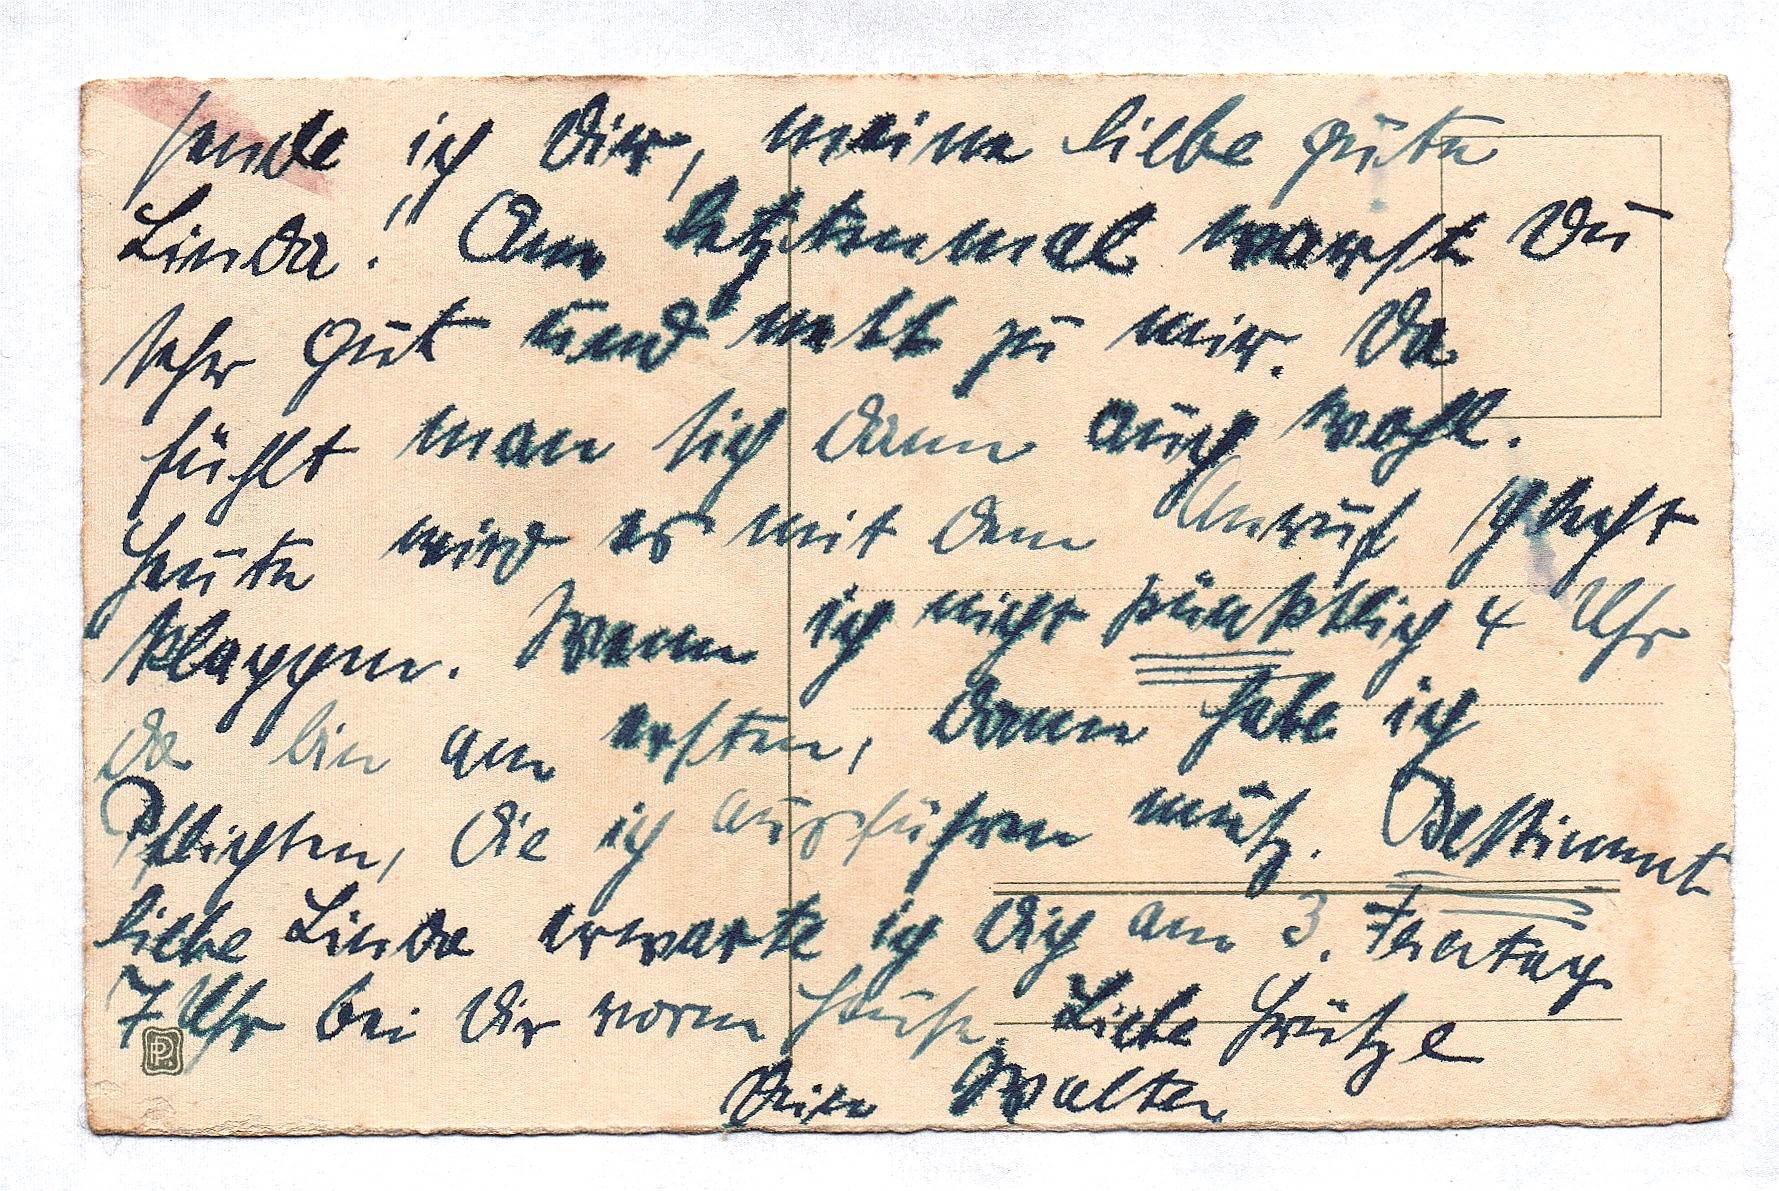 sende ich Dir, meine liebe gute
Linda! Am letztenmal warst Du
sehr gut und nett zu mir. Da
fühlt man sich dann auch wohl.
Heute wird es mit dem Anruf schlecht
klappen. Wenn ich nicht pünktlich 4 Uhr
da bin am ersten, dann habe ich
Pflichten, die ich ausführen muß. Bestimmt
liebe Linda erwarte ich Dich am 3. Feiertag
7 Uhr bei Dir vorm Hause. Liebe Grüße
Dein Walter